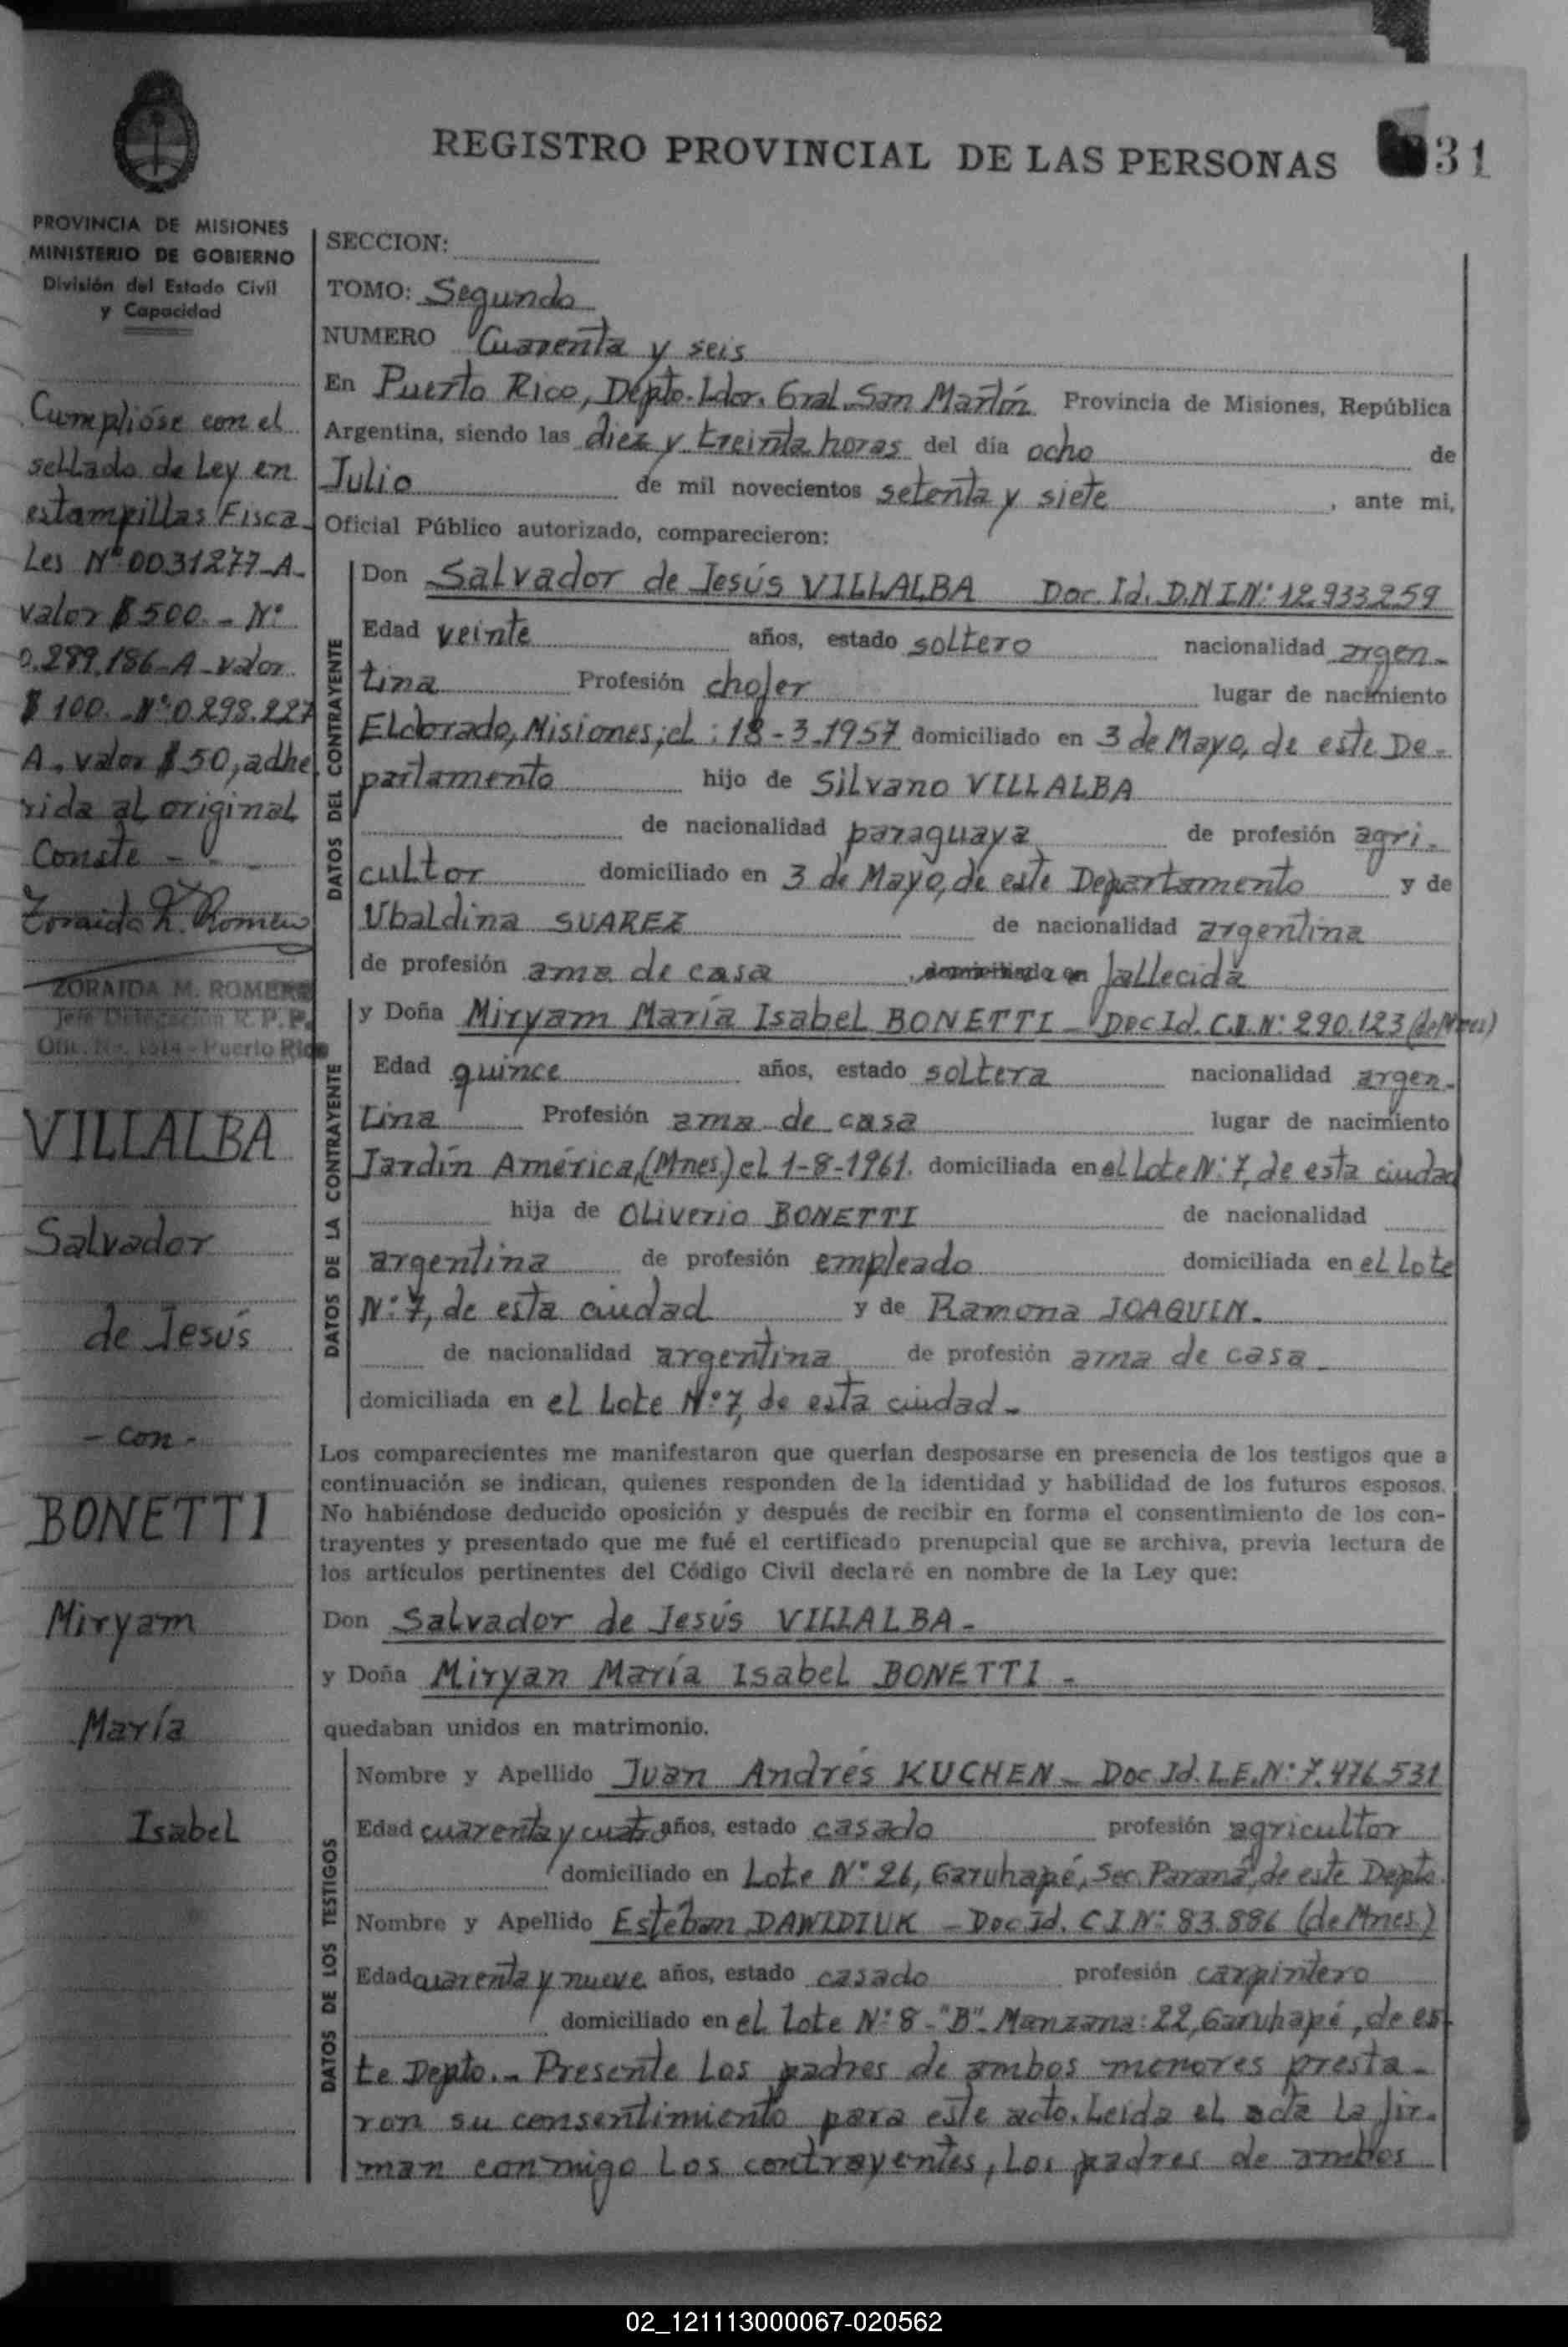 REGISTRO PROVINCIAL DE LAS PERSONAS
31
PROVINCIA DE MISIONES
MINISTERIO DE GOBIERNO
División del Estado Civil
y Capacidad
Cumplióse con el
sellado de Ley en
estampillas Fisca-
les Nº 0031277-A-
valor $ 500.- Nº
0.289.186-A-valor
$ 100.- Nº 0298.227
A, valor $ 50, adhe
rida al original
Conste - - -
ZORAIDA M. ROMERO
Jefe Delegación R. P. P.
Ofic. Nº 1514 - Puerto Rico
VILLALBA
Salvador
de Jesús
- con -
BONETTI
Miryam
María
Isabel
SECCION:
TOMO: Segundo
NUMERO Cuarenta y seis
En Puerto Rico, Depto. Ldor. Gral. San Martín Provincia de Misiones, República
Argentina, siendo las diez y treinta horas del día ocho de
Julio de mil novecientos setenta y siete, ante mi,
Oficial Público autorizado, comparecieron:
DATOS DEL CONTRAYENTE
Don Salvador de Jesús VILLALBA Doc. Id. D.N.I.Nº: 12.933.259
Edad veinte años, estado soltero nacionalidad argen-
tina Profesión chofer lugar de nacimiento
Eldorado, Misiones; el: 18-3-1957 domiciliado en 3 de Mayo, de este De-
partamento hijo de Silvano VILLALBA
de nacionalidad paraguaya de profesión agri-
cultor domiciliado en 3 de Mayo, de este Departamento y de
Ubaldina SUAREZ de nacionalidad argentina
de profesión ama de casa, domiciliada en fallecida
DATOS DE LA CONTRAYENTE
y Doña Miryam María Isabel BONETTI - Doc Id. C.I. Nº: 290.123 (de Mnes)
Edad quince años, estado soltera nacionalidad argen-
tina Profesión ama de casa lugar de nacimiento
Jardín América, (Mnes.) el 1-8-1961. domiciliada en el Lote Nº: 7, de esta ciudad
hija de Oliverio BONETTI de nacionalidad
argentina de profesión empleado domiciliada en el Lote
Nº: 7, de esta ciudad y de Ramona JOAQUIN.
de nacionalidad argentina de profesión ama de casa
domiciliada en el Lote Nº: 7, de esta ciudad -
Los comparecientes me manifestaron que querían desposarse en presencia de los testigos que a
continuación se indican, quienes responden de la identidad y habilidad de los futuros esposos.
No habiéndose deducido oposición y después de recibir en forma el consentimiento de los con-
trayentes y presentado que me fué el certificado prenupcial que se archiva, previa lectura de
los artículos pertinentes del Código Civil declaré en nombre de la Ley que:
Don Salvador de Jesús VILLALBA -
y Doña Miryan María Isabel BONETTI -
quedaban unidos en matrimonio.
DATOS DE LOS TESTIGOS
Nombre y Apellido Juan Andrés KUCHEN - Doc. Id. L.E. Nº: 7.476.531
Edad cuarenta y cuatro años, estado casado profesión agricultor
domiciliado en Lote Nº 26, Garuhapé, Sec. Paraná, de este Depto.
Nombre y Apellido Estéban DAWIDIUK - Doc. Id. C.I Nº: 83.886 (de Mnes)
Edad cuarenta y nueve años, estado casado profesión carpintero
domiciliado en el Lote Nº: 8-"B"- Manzana: 22, Garuhapé, de es-
te Depto. - Presente los padres de ambos menores presta-
ron su consentimiento para este acto. Leida el acta la fir-
man conmigo los contrayentes, los padres de ambos
02_121113000067-020562